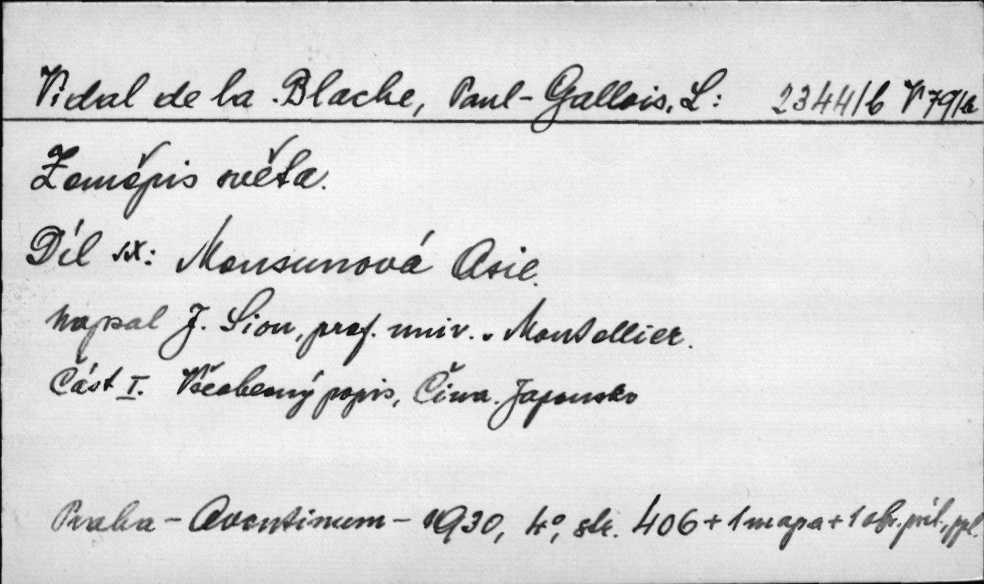 Vidal de la Blache, Paul - Gallois, L: 2344/b V 79/a
Zeměpis světa.
Díl IX: Monsunová Asie.
napsal J. Sion, prof. univ. v Montpellier.
Část I. Všeobecný popis, Čína. Japonsko
Praha - Aventinum - 1930, 4°, str. 406 + 1 mapa + 1 obr. příl., ppl.